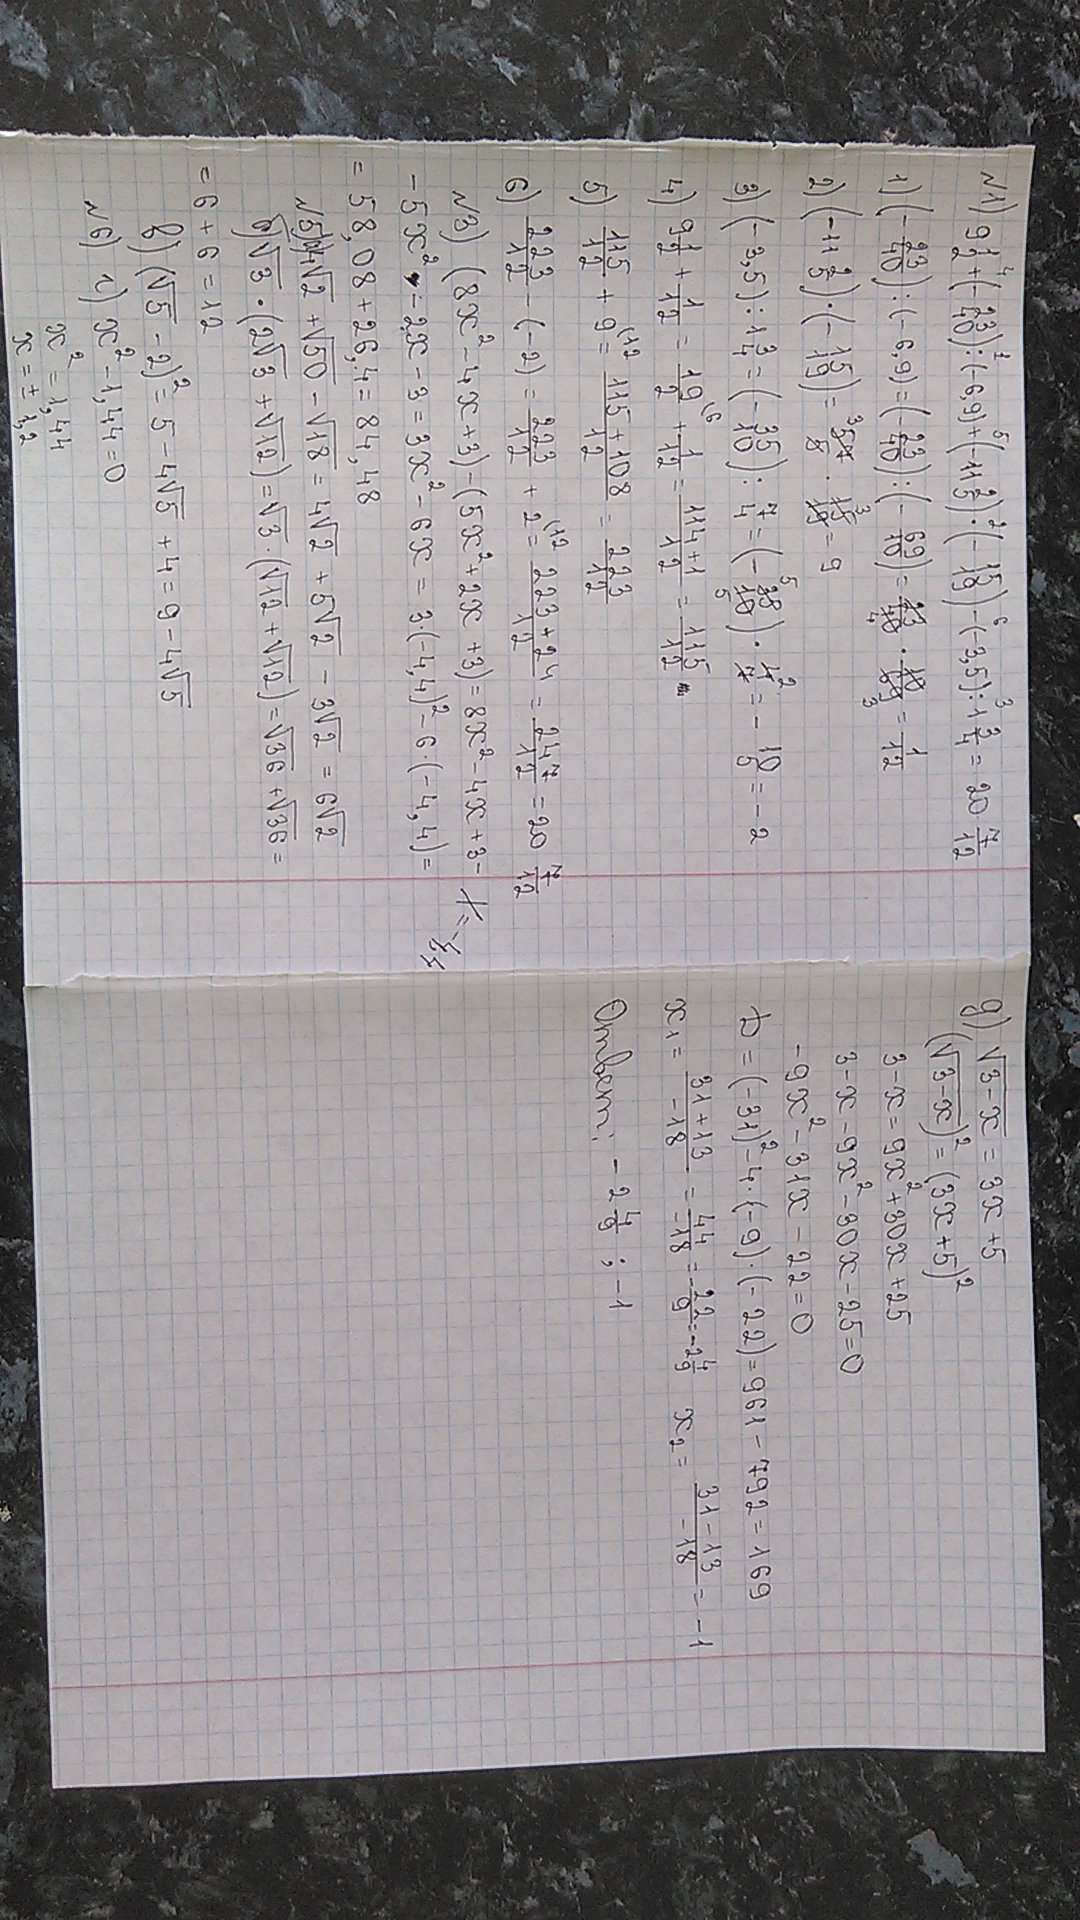 N1) 9 1/2 + (-23/40) : (-6,9) + (-11 2/5) · (-15/19) - (-3,5) : 1 3/4 = 20 7/12
1) (-23/40) : (-6,9) = (-23/40) : (-69/10) = 23/40 · 10/69 = 1/12
2) (-11 2/5) · (-15/19) = 57/5 · 15/19 = 9
3) (-3,5) : 1 3/4 = (-35/10) : 7/4 = (-35/10) · 4/7 = -10/5 = -2
4) 9 1/2 + 1/12 = 19/2 + 1/12 = 114+1/12 = 115/12
5) 115/12 + 9 = 115+108/12 = 223/12
6) 223/12 - (-2) = 223/12 + 2 = 223+24/12 = 247/12 = 20 7/12
N3) (8x² - 4x + 3) - (5x² + 2x + 3) = 8x² - 4x + 3 - x = -4,4
- 5x² - 2x - 3 = 3x² - 6x = 3·(-4,4)² - 6·(-4,4) =
= 58,08 + 26,4 = 84,48
N5) 4√2 + √50 - √18 = 4√2 + 5√2 - 3√2 = 6√2
б) √3 · (2√3 + √12) = √3 · (√12 + √12) = √36 + √36 =
= 6 + 6 = 12
в) (√5 - 2)² = 5 - 4√5 + 4 = 9 - 4√5
N6) г) x² - 1,44 = 0
x² = 1,44
x = ± 1,2
g) √3-x = 3x + 5
(√3-x)² = (3x + 5)²
3 - x = 9x² + 30x + 25
3 - x - 9x² - 30x - 25 = 0
-9x² - 31x - 22 = 0
D = (-31)² - 4·(-9)·(-22) = 961 - 792 = 169
x1 = 31+13/-18 = 44/-18 = -22/9 = -2 4/9 x2 = 31-13/-18 = -1
Ответ: -2 4/9 ; -1